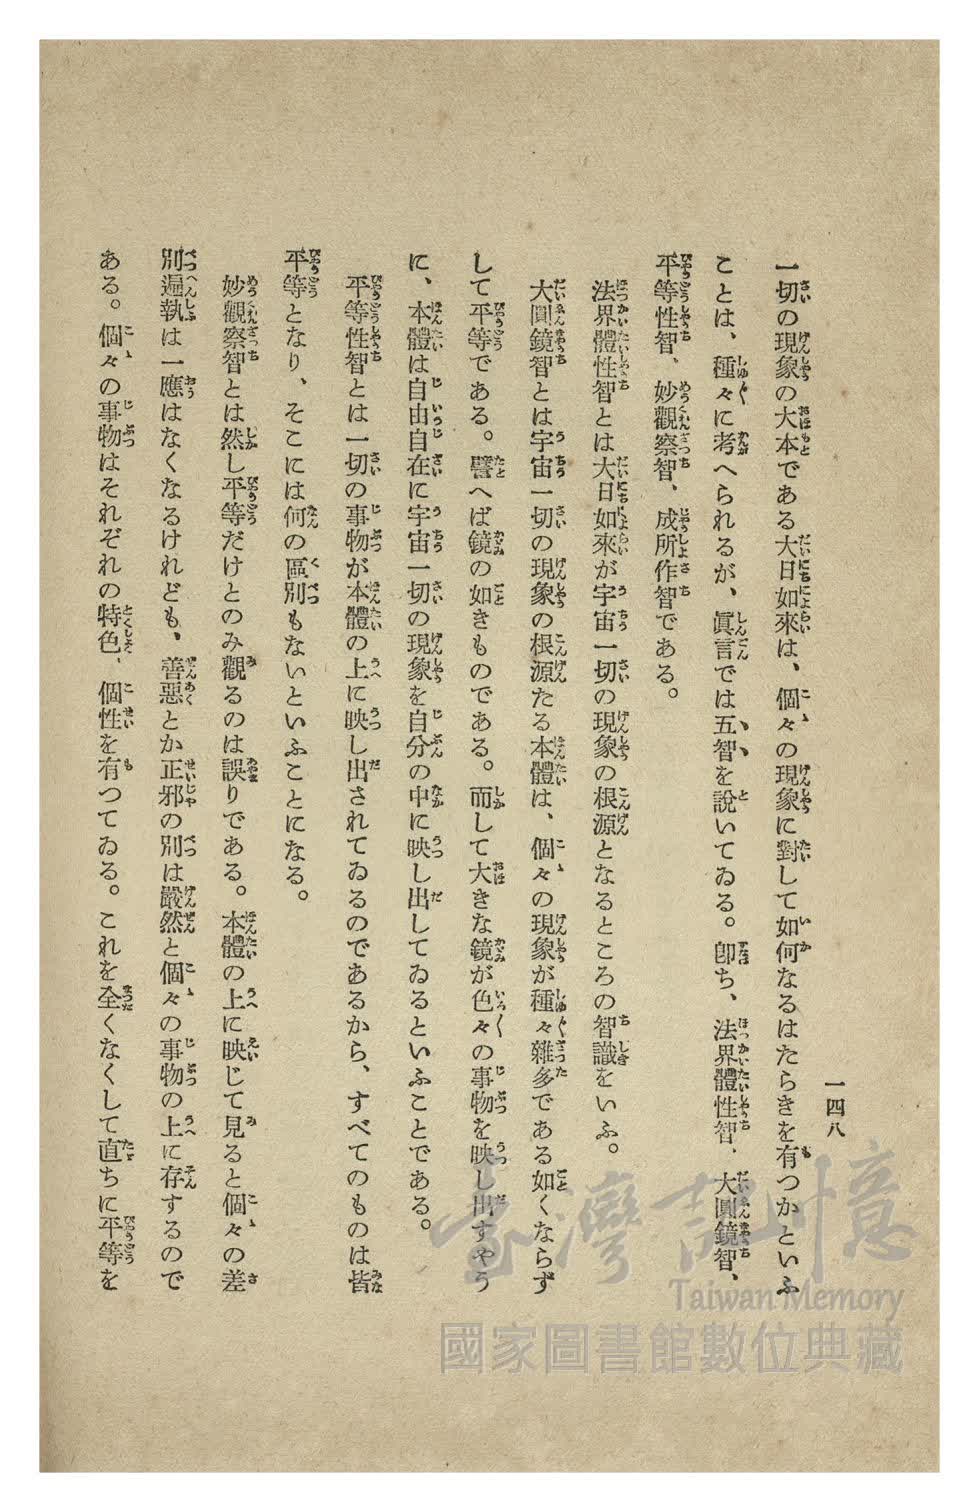 一四八
一切の現象の大本である大日如來は、個々の現象に對して如何なるはたらきを有つかといふ
ことは、種々に考へられるが、眞言では五智を說いてゐる。卽ち、法界體性智、大圓鏡智、
平等性智、妙觀察智、成所作智である。
法界體性智とは大日如來が宇宙一切の現象の根源となるところの智識をいふ。
大圓鏡智とは宇宙一切の現象の根源たる本體は、個々の現象が種々雜多である如くならず
して平等である。譬へば鏡の如きものである。而して大きな鏡が色々の事物を映し出すやう
に、本體は自由自在に宇宙一切の現象を自分の中に映し出してゐるといふことである。
平等性智とは一切の事物が本體の上に映し出されてゐるのであるから、すべてのものは皆
平等となり、そこには何の區別もないといふことになる。
妙觀察智とは然し平等だけとのみ觀るのは誤りである。本體の上に映じて見ると個々の差
別遍執は一應はなくなるけれども、善惡とか正邪の別は嚴然と個々の事物の上に存するので
ある。個々の事物はそれぞれの特色、個性を有つてゐる。これを全くなくして直ちに平等を
臺灣記憶
Taiwan Memory
國家圖書館數位典藏